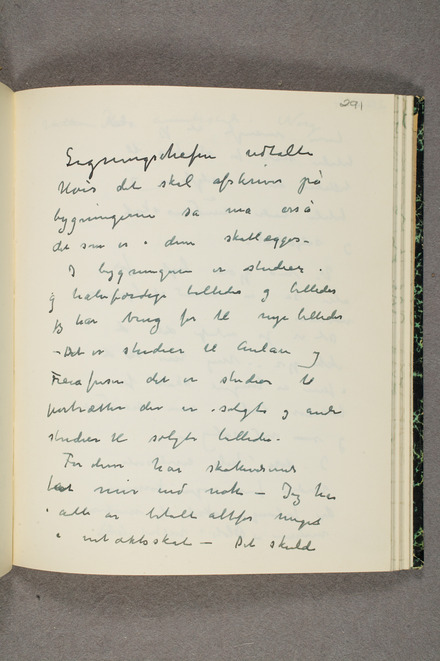 291
Ligningschefen udtalte
Hvis det skal afskrives på
bygningerne så må også
de som er i dem skatlægges –
I bygningerne er studier.
og halvfærdige billeder og billeder
jeg har brug for til nye billeder
– Det er studier til Aulaen og
Freia frisen det er studier til
portrætter der er solgte og andre
studier til solgte billeder.
For dem har skattevæsenet
tat mer end nok – Jeg har
i alle år betalt altfor meget
i indtægtsskat – Det skulde